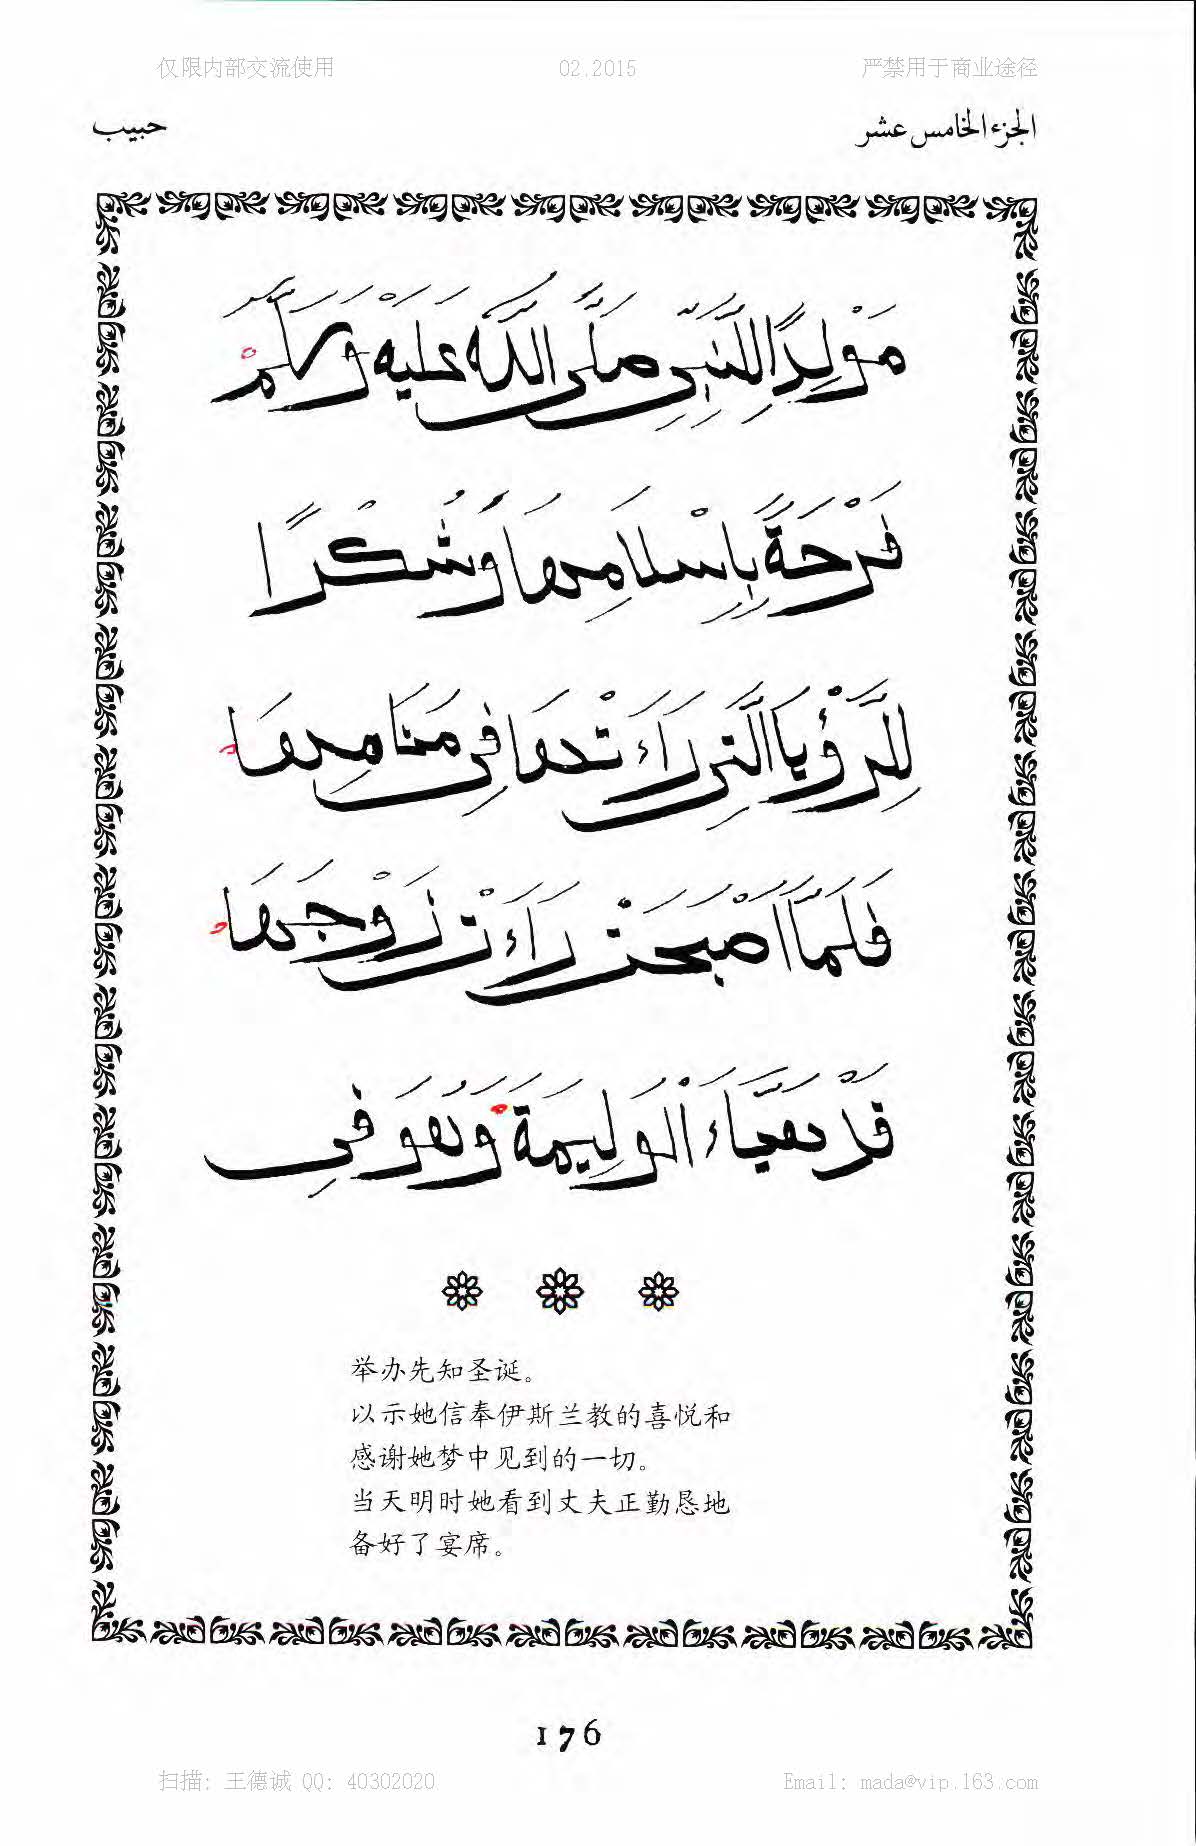 仅限内部交流使用 02.2015 严禁用于商业途径
الجزء الخامس عشر حبيب
مَوْلِدًا لِلنَّبِيِّ صَلَّى اللَّهُ عَلَيْهِ وَسَلَّمَ
فَرْحَةً بِإِسْلَامِهَا وَشُكْرًا
لِلرُّؤْيَا الَّتِي رَاَءَتْهَا فِي مَنَامِهَا
فَلَمَّا اَصْبَحَتْ رَاَءَتْ زَوْجَهَا
قَدْ هَيَّاَءَ الْوَلِيمَةَ وَهُوَ فِي
举办先知圣诞。
以示她信奉伊斯兰教的喜悦和
感谢她梦中见到的一切。
当天明时她看到丈夫正勤恳地
备好了宴席。
176
扫描: 王德诚 QQ: 40302020 Email: mada@vip.163.com